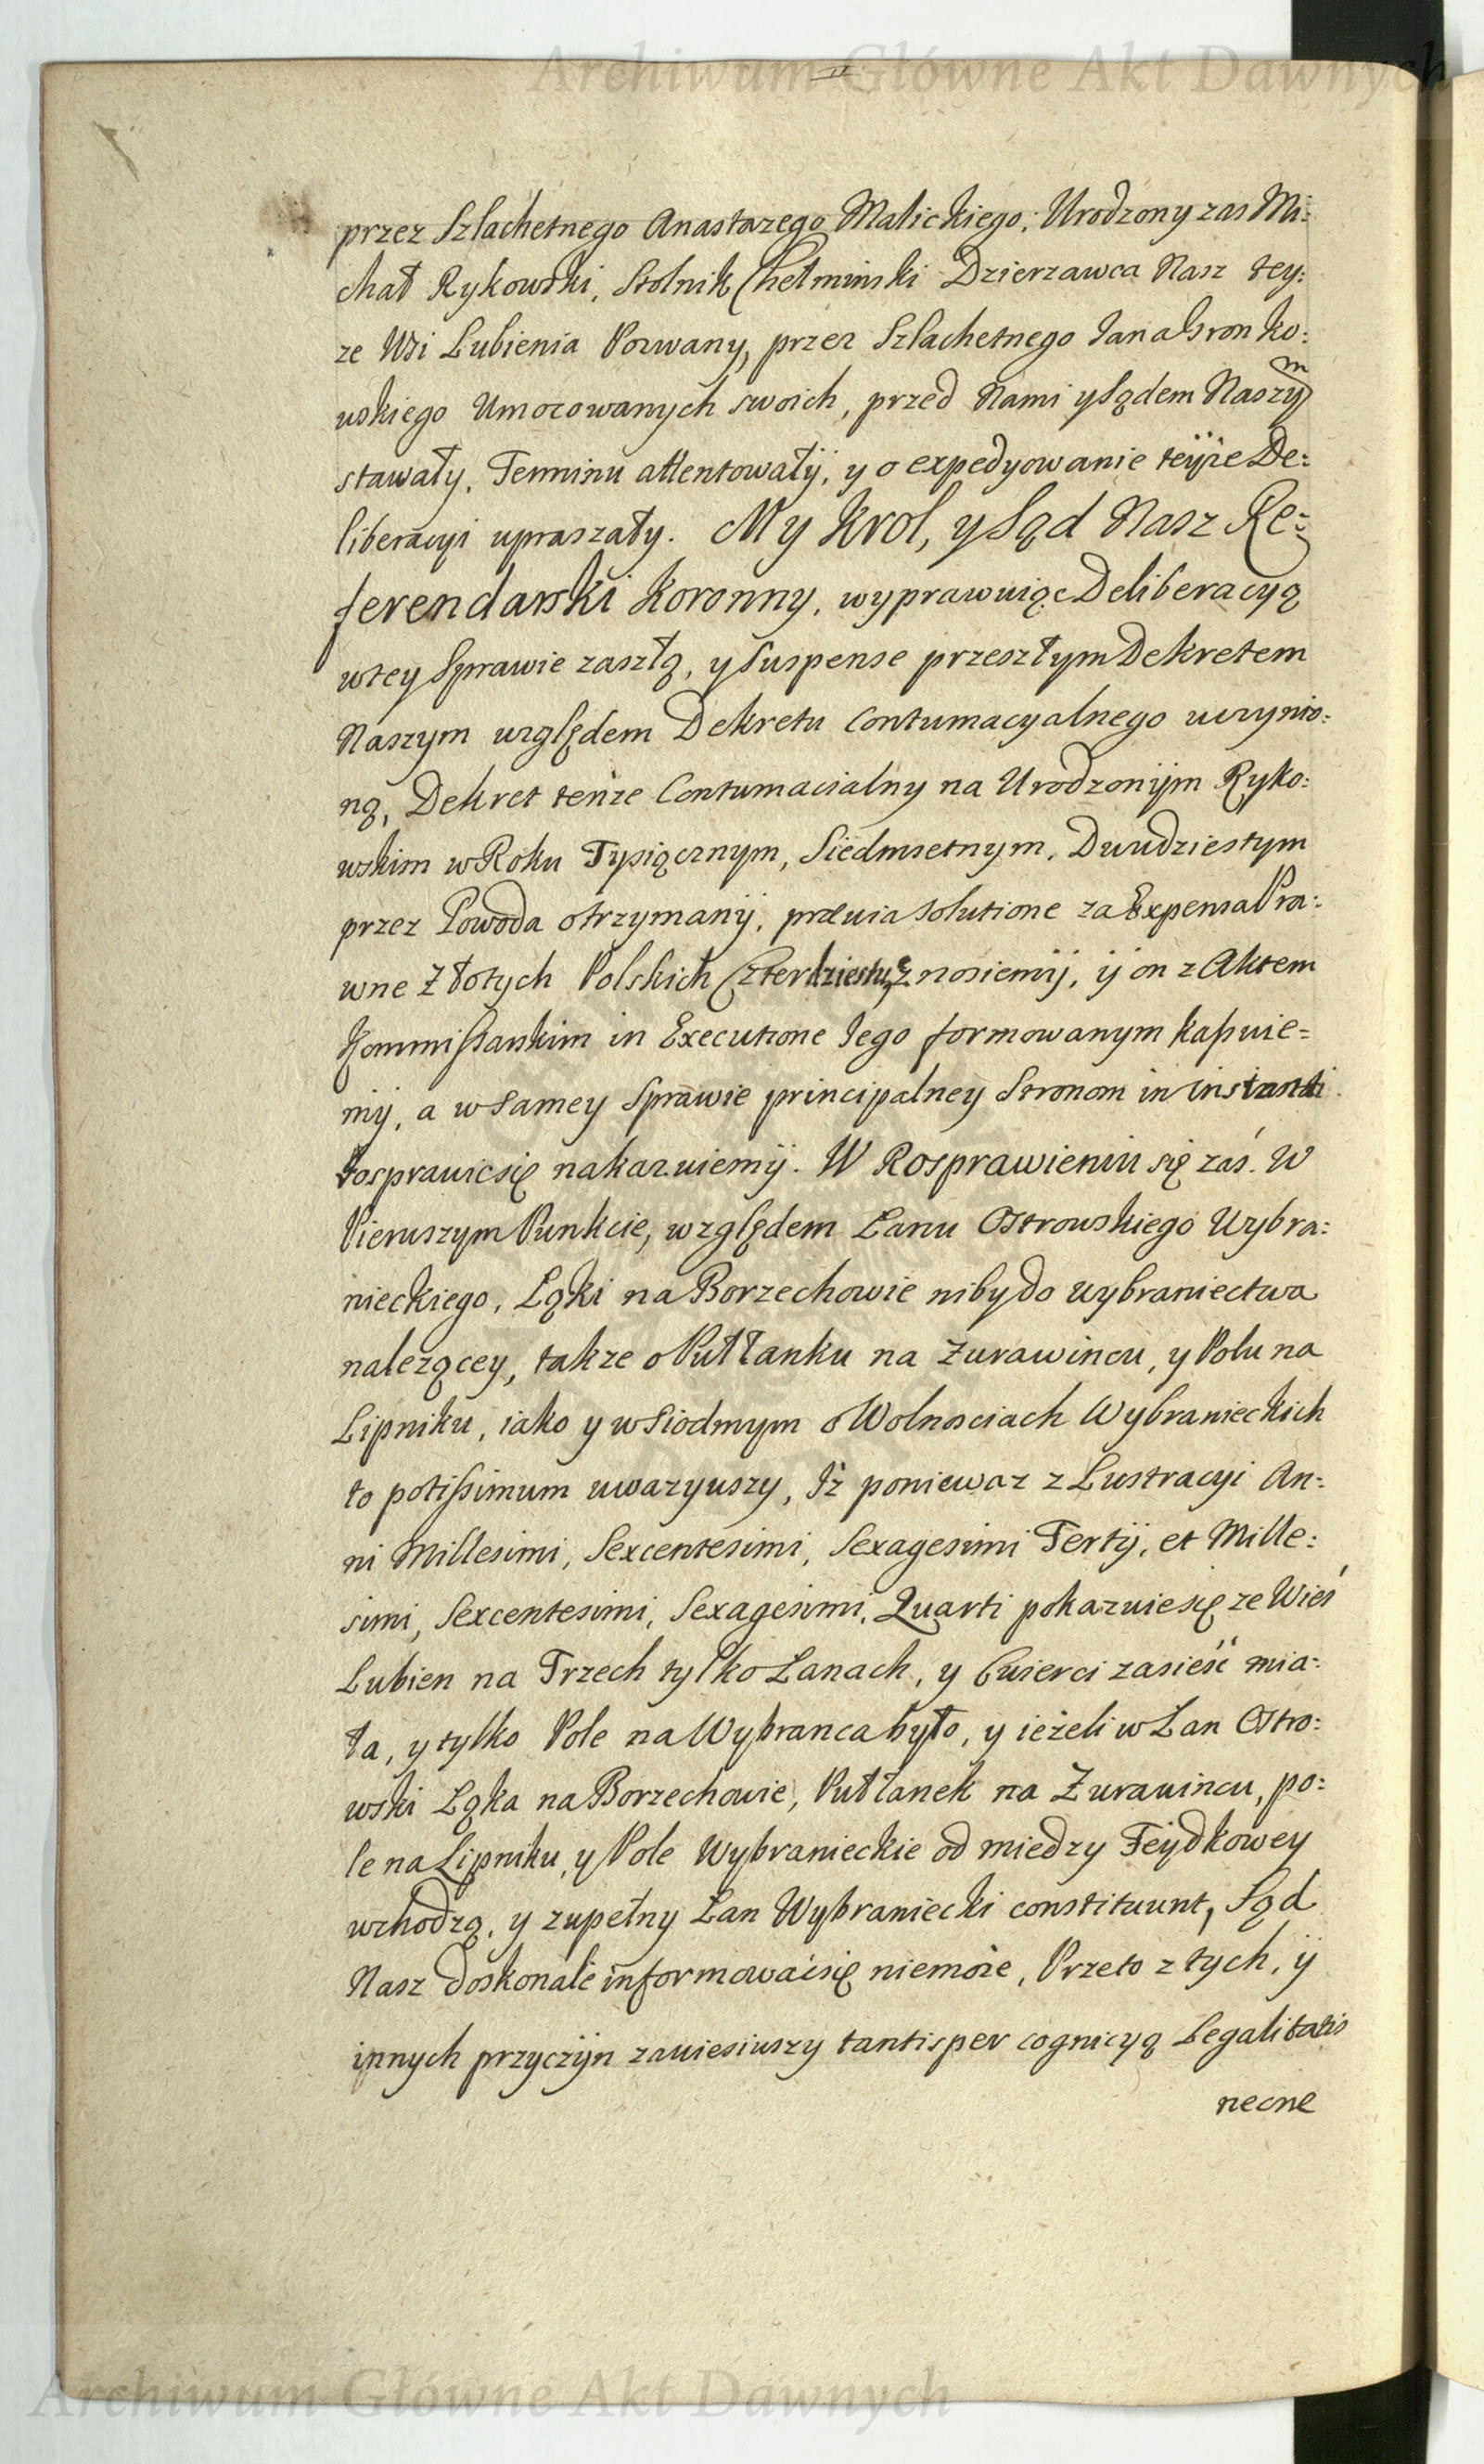 Archiwum Główne Akt Dawnych
przez Szlachetnego Anastazego Malickiego; Urodzony zas Mi:
chał Rykowski, Stolnik Chełminski Dzierzawca Nasz tey:
ze Wsi Lubienia Pozwany, przez Szlachetnego Jana Gronko:
wskiego Umocowanych swoich, przed Nami y Sądem Naszym
stawały, Terminu attentowałÿ, y o expedyowanie teÿze De:
liberacyi upraszały. My Krol, y Sąd Nasz Re:
ferendarski Koronny, wyprawuiąc Deliberacyą
w tey Sprawie zaszłą, y Suspense przeszłym Dekretem
Naszym względem Dekretu Contumacyalnego uczynio:
ną, Dekret tenże Contumacialny na Urodzonÿm Ryko:
wskim w Roku Tysiącznym, Siedmsetnym, Dwudziestym
przez Powoda otrzymanÿ, prævia solutione za Expensa Pra:
wne Złotych Polskich Czterdziestu, znosiemÿ, ÿ on z Aktem
Kommissarskim in Executione Jego formowanym kassuie=
mÿ, a w samey Sprawie principalney Stronom in instanti
rosprawic się nakazuiemÿ. W Rosprawieniu się zaś. W
Pierwszym Punkcie, względem Łanu Ostrowskiego Wybra:
nieckiego, Łąki na Borzechowie niby do wybraniectwa
nalezącey, takze o Pułłanku na Zurawincu, y Polu na
Lipniku, iako y w Siodmym o Wolnosciach Wybranieckich
to potissimum uwazywszy, Iż poniewaz z Lustracyi An:
ni Millesimi, Sexcentesimi, Sexagesimi Tertÿ, et Mille:
simi, Sexcentesimi, Sexagesimi, Quarti pokazuie się ze Wieś
Lubien na Trzech tylko Łanach, y Cwierci zasieść mia:
ła, y tylko Pole na Wybranca było, y ieżeli w Łan Ostro:
wski Łąka na Borzechowie, Pułłanek na Zurawincu, po:
le na Lipniku, y Pole Wybranieckie od miedzy Feÿdkowey
wchodzą, y zupełny Łan Wybraniecki constituunt, Sąd
Nasz doskonale informować się niemoże, Przeto z tych, ÿ
innych przyczÿn zawiesiwszy tantisper cognicyą Legalitatis
necne
Archiwum Główne Akt Dawnych